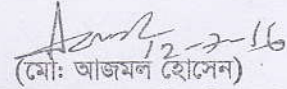 12-7-16
(মোঃ আজমল হোসেন)